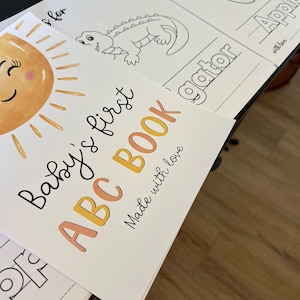 s for
Baby's first
ABC BOOK
Made with love
gator
Appl